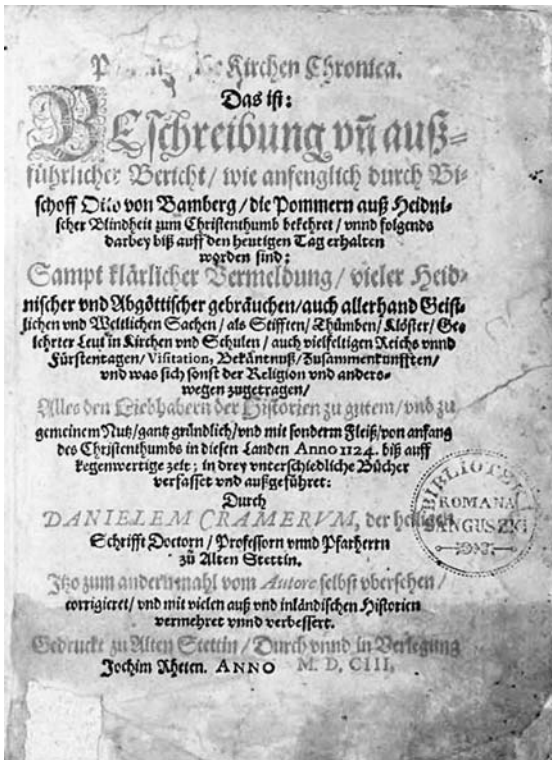 Kirchen Chronica.
Das ist:
BEschreibung vñ auß-
führlicher Bericht / wie anfenglich durch Bi-
schoff Otto von Bamberg / die Pommern auß Heidni-
scher Blindheit zum Christenthumb bekehret / vnnd folgends
darbey biß auff den heutigen Tag erhalten
worden sind:
Sampt klärlicher Vermeldung / vieler Heid-
nischer vnd Abgöttischer gebräuchen / auch allerhand Geist-
lichen vnd Weltlichen Sachen / als Stifften / Thümben / Klöster / Ge-
lehrter Leut in Kirchen vnd Schulen / auch vielfeltigen Reichs vnnd
Fürstentagen / Visitation, Bekäntnuß / Zusammenkunfften /
vnd was sich sonst der Religion vnd anders-
wegen zugetragen /
Alles den Liebhabern der Historien zu gutem / vnd zu
gemeinem Nutz / gantz gründlich / vnd mit sonderm Fleiß / von anfang
des Christenthumbs in diesen Landen Anno 1124. biß auff
kegenwertige zeit; in drey vnterschiedliche Bücher
verfasset vnd außgeführet:
Durch
DANIELEM CRAMERVM, der heiligen
Schrifft Doctorn / Professorn vnnd Pfarherrn
zü Alten Stettin.
Itzo zum andernmahl vom Autore selbst vbersehen /
corrigieret / vnd mit vielen auß vnd inländischen Historien
vermehret vnnd verbessert.
Gedruckt zu Alten Stettin / Durch vnnd in Verlegung
Jochim Rheten. ANNO M. D. CIII.
BIBLIOTEKA
ROMANA
SANGUSZKI